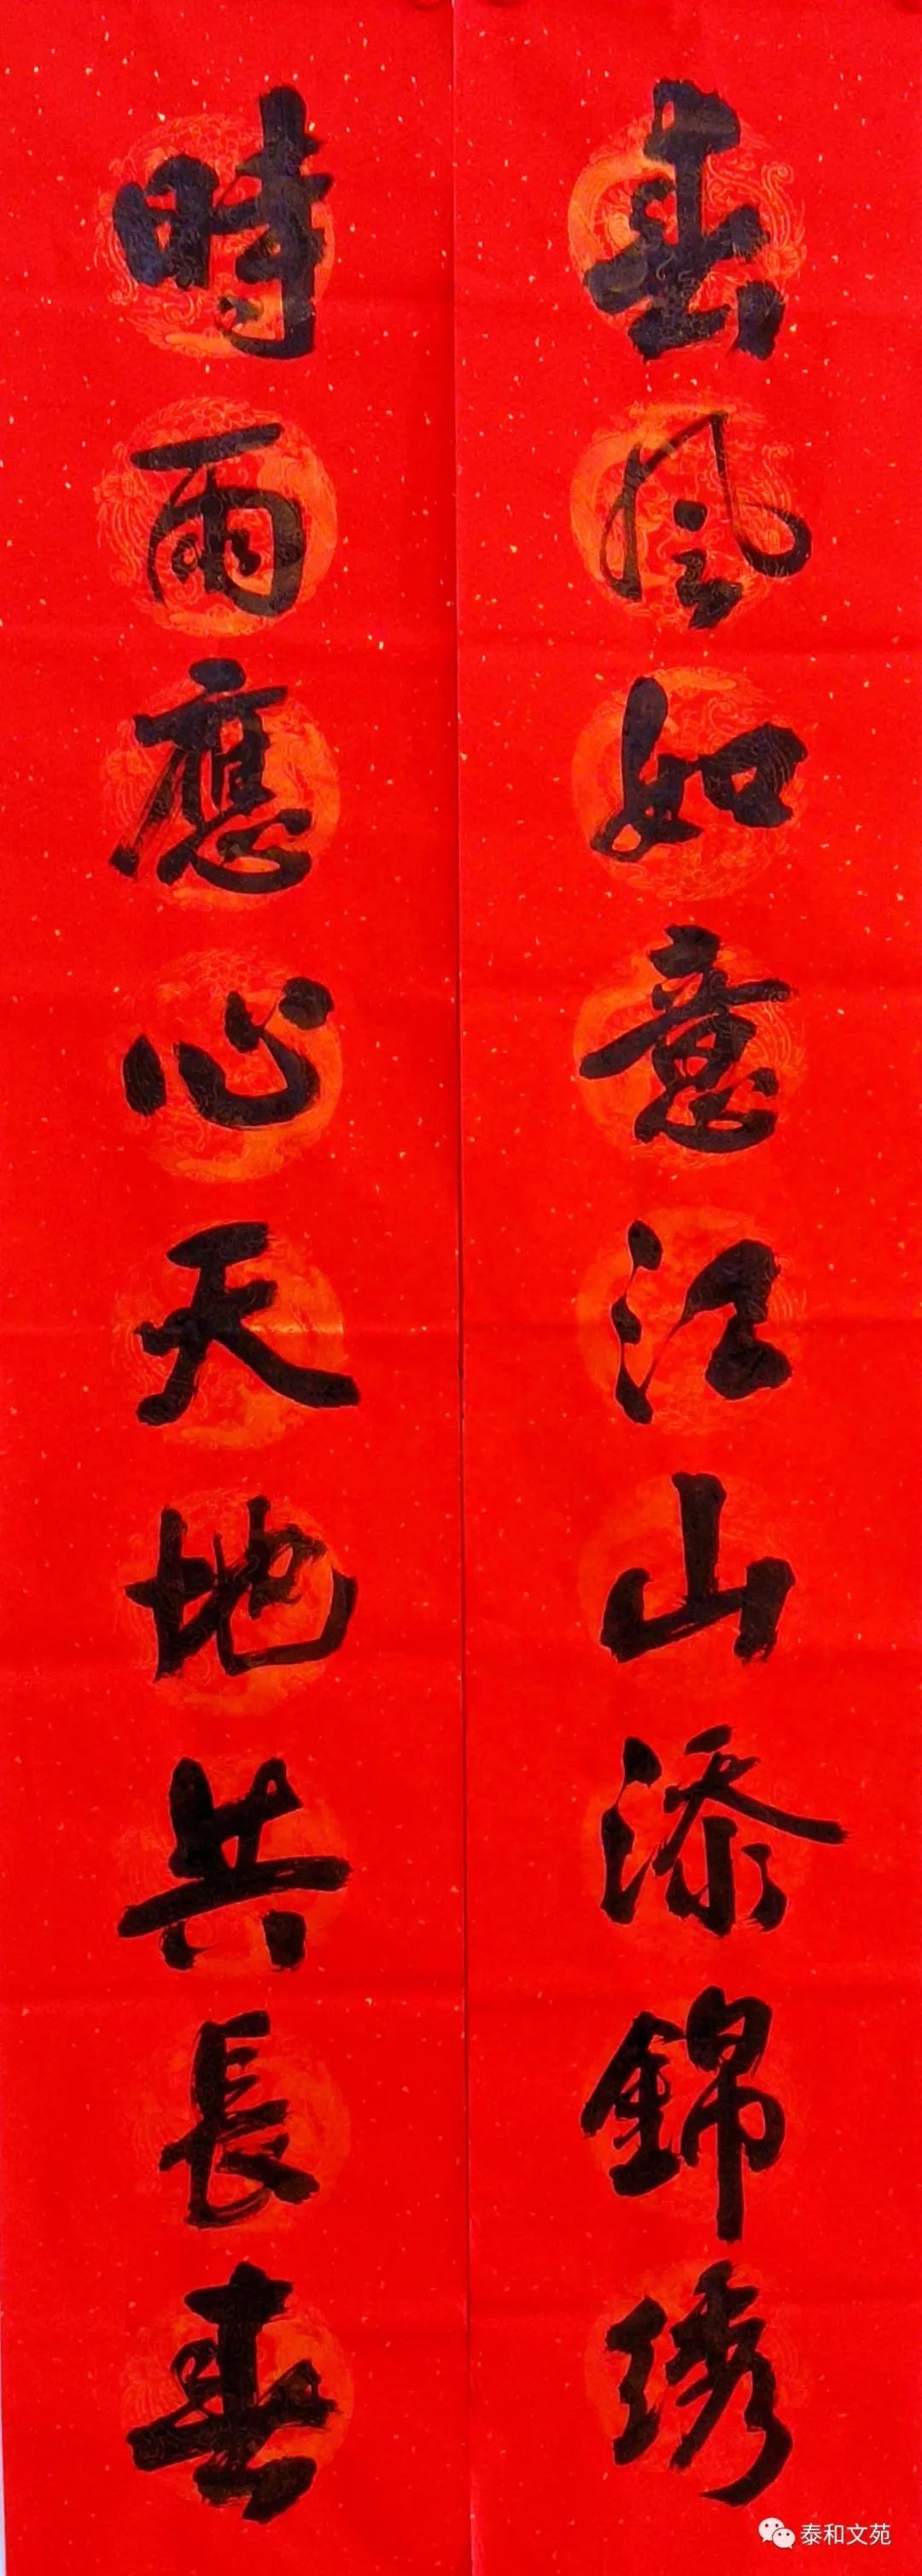 春风如意江山添錦绣
時雨應心天地共長春
泰和文苑